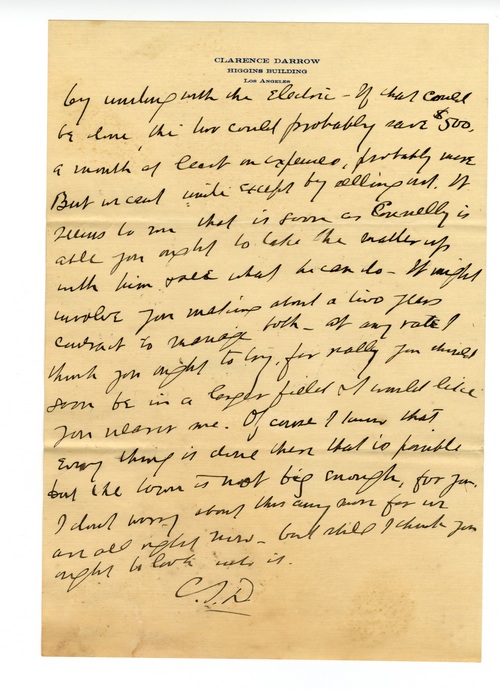 CLARENCE DARROW
HIGGINS BUILDING
LOS ANGELES
by uniting with the Electric - If that could
be done, the two could probably save $500.
a month at least in expenses, probably more
But we cant unite except by selling out. It
seems to me that as soon as Connelly is
able you ought to take the matter up
with him & see what he can do - It might
involve you making about a two years
contract to manage both - at any rate I
think you ought to try, for really you should
soon be in a larger field & I would like
you nearer me. Of course I know that
every thing is done there that is possible
but the town is not big enough, for you.
I dont worry about this any more for we
are all right now - but still I think you
ought to look into it.
C.S.D.